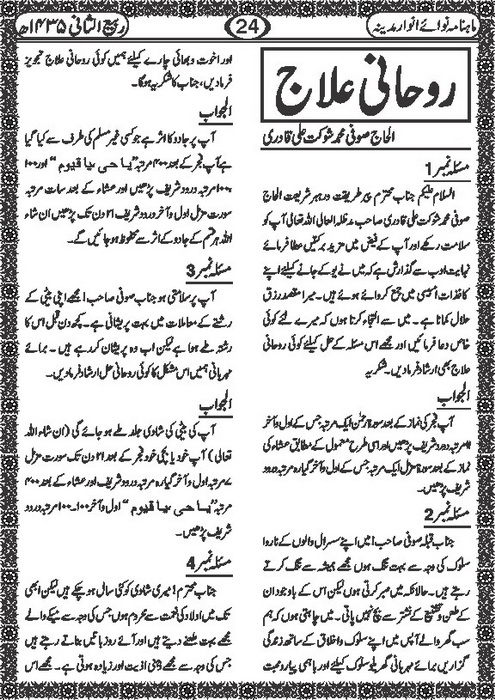 ماہنامہ نوائے انوار مدینہ
24
ربیع الثانی ۱۴۳۵ھ
روحانی علاج
الحاج صوفی محمد شوکت علی قادری
مسئلہ نمبر 1
السلام علیکم جناب محترم پیر طریقت و رہبر شریعت الحاج
صوفی محمد شوکت علی قادری صاحب مدظلہ العالی اللہ تعالی آپ کو
سلامت رکھے اور آپ کے فیض میں مزید برکتیں عطا فرمائے
نہایت ادب سے گذارش ہے کہ میں نے یو کے جانے کیلئے اپنے
کاغذات ایمبیسی میں جمع کروائے ہوئے ہیں۔ میرا مقصد رزق
حلال کمانا ہے۔ میں سے التجاء کرتا ہوں کہ میرے لئے کوئی
خاص دعا فرمائیں اور مجھے اس مسئلہ کے حل کیلئے کوئی روحانی
علاج بھی ارشاد فرمادیں۔ شکریہ
الجواب
آپ فجر کی نماز کے بعد سورۃ رحمٰن ایک مرتبہ جس کے اول و آخر
۱۱ مرتبہ درود شریف پڑھیں اور اسی طرح معمول کے مطابق عشاء کی
نماز کے بعد سورۃ مزمل ایک مرتبہ جس کے اول و آخر گیارہ مرتبہ درود
شریف پڑھیں۔
مسئلہ نمبر 2
جناب قبلہ صوفی صاحب! میں اپنے سسرال والوں کے ناروا
سلوک کی وجہ سے بہت تنگ ہوں مجھے ہمیشہ سے تنگ کرتے
رہتے ہیں۔ حالانکہ میں صبر کرتی ہوں لیکن اس کے باوجود ان
کے طعن و تشنیع کے نشتر سے بچ نہیں پاتی۔ میں چاہتی ہوں کہ ہم
سب گھر والے آپس میں اپنے سلوک و اخلاق کے ساتھ زندگی
گزاریں برائے مہربانی گھریلو سلوک کیلئے اور باہمی پیار و محبت
اور اخوت و بھائی چارے کیلئے ہمیں کوئی روحانی علاج تجویز
فرمادیں، جناب کا شکریہ ہوگا۔
الجواب
آپ پر جادو کا اثر ہے جو کسی غیر مسلم کی طرف سے کیا گیا
ہے آپ فجر کے بعد ۴۰۰ مرتبہ "یا حی یا قیوم" اور ۱۰۰
۱۰۰ مرتبہ درود شریف پڑھیں اور عشاء کے بعد سات مرتبہ
سورت مزمل اول و آخر درود شریف ۲۱ دن تک پڑھیں ان شاء
اللہ ہر قسم کے جادو کے اثر سے محفوظ ہو جائیں گے۔
مسئلہ نمبر 3
آپ پر سلامتی ہو جناب صوفی صاحب! مجھے اپنی بیٹی کے
رشتے کے معاملات میں بہت پریشانی ہے۔ کچھ دن قبل اس کا
رشتہ طے ہوا ہے لیکن اب وہ پریشان کر رہے ہیں۔ برائے
مہربانی ہمیں اس مشکل کا کوئی روحانی حل ارشاد فرمادیں۔
الجواب
آپ کی بیٹی کی شادی جلد طے ہو جائے گی (ان شاء اللہ
تعالی) آپ خود یا بچی خود فجر کے بعد ۲۱ دن تک سورت مزمل
۷ مرتبہ اول و آخر گیارہ مرتبہ درود شریف اور عشاء کے بعد ۴۰۰
مرتبہ "یا حی یا قیوم" اول و آخر ۱۰۰۔۱۰۰ مرتبہ درود
شریف پڑھیں۔
مسئلہ نمبر 4
جناب محترم! میری شادی کو کئی سال ہو چکے ہیں لیکن ابھی
تک میں اولاد کی نعمت سے محروم ہوں جس کی وجہ سے میکے والے
مجھے بہت طعنے دیتے ہیں اور آئے روز باتیں بناتے رہتے ہیں
جس کی وجہ سے مجھے ذہنی اذیت اور زیادہ ہوتی ہے۔ مجھے اس